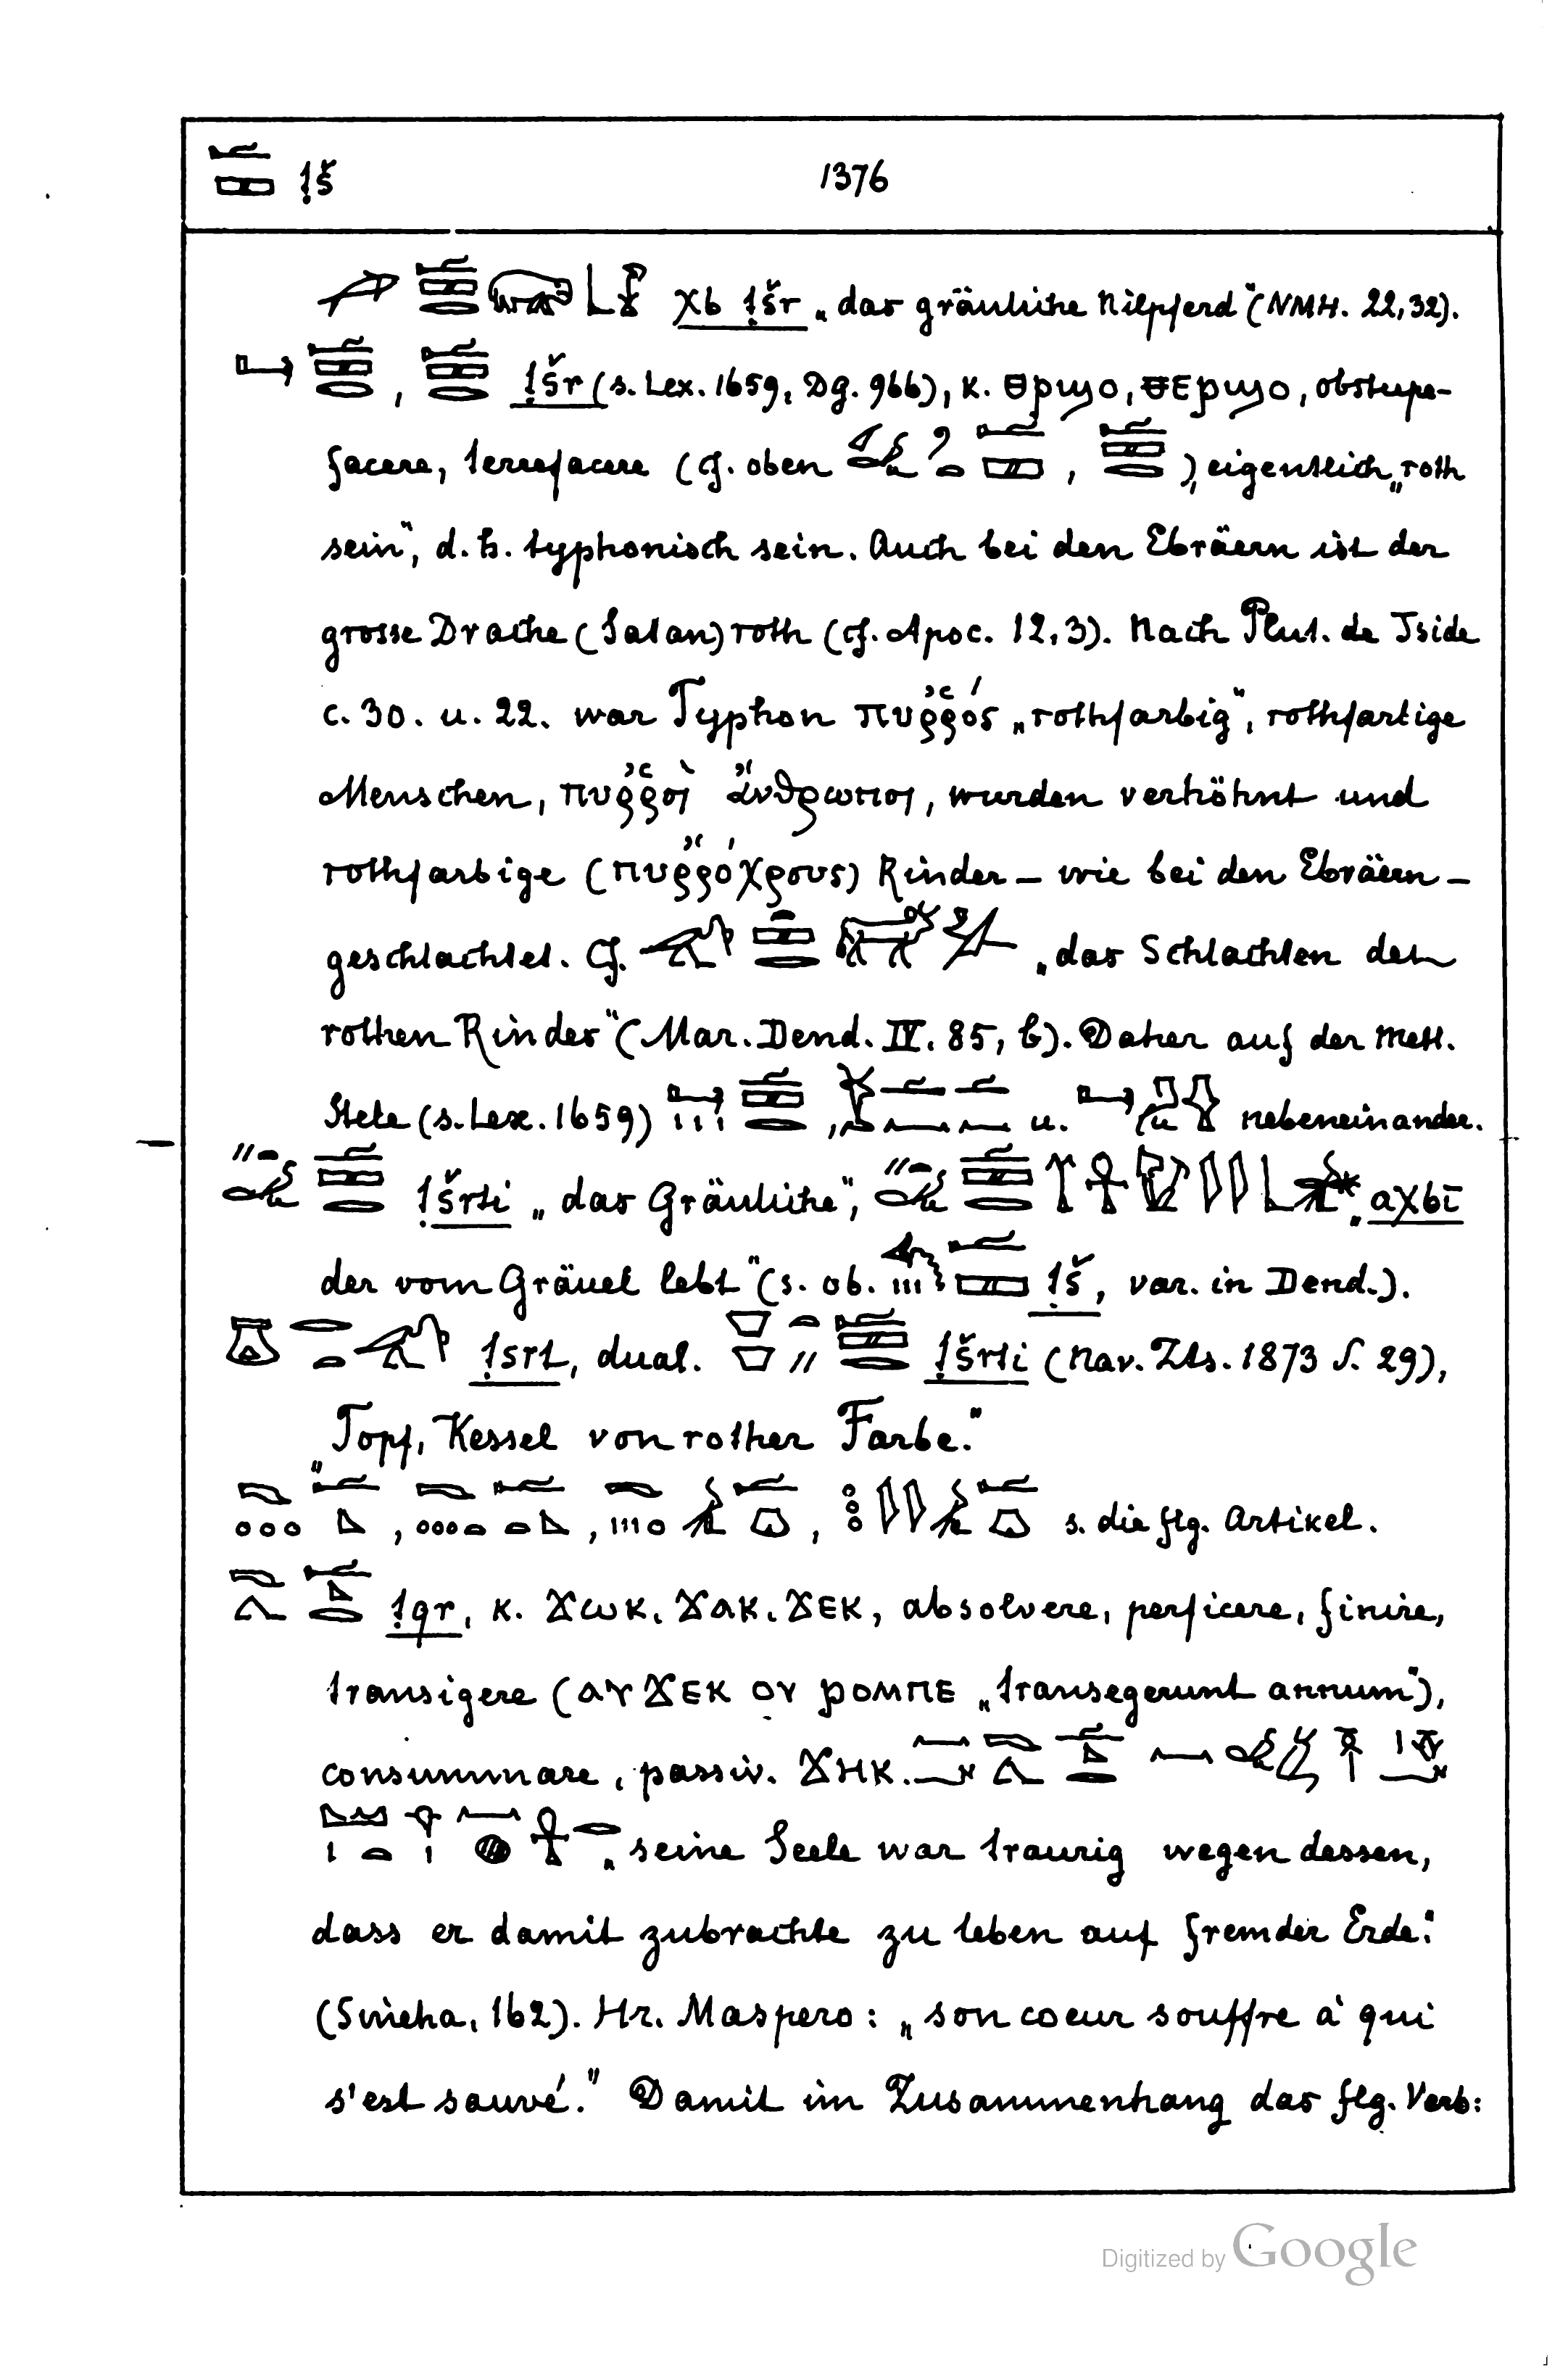 ṭš 1376
χb ṭšr „das gräuliche Nilpferd“ (NMH. 22,32).
, ṭšr (s. Lex. 1659, Dg. 966), K. ⲑⲣϣⲟ, ⲑⲉⲣϣⲟ, obstupe-
facere, terrefacere (cf. oben , ), eigentlich „roth
sein“, d. h. typhonisch sein. Auch bei den Ebräern ist der
grosse Drache (Satan) roth (cf. Apoc. 12,3). Nach Plut. de Iside
c. 30. u. 22. war Typhon πυῤῥός „rothfarbig“, rothfarbige
Menschen, πυῤῥοὶ ἄνθρωποι, wurden verhöhnt und
rothfarbige (πυῤῥόχρους) Rinder – wie bei den Ebräern –
geschlachtet. Cf. „das Schlachten der
rothen Rinder“ (Mar. Dend. IV. 85, b). Daher auf der Mett.
Stele (s. Lex. 1659) , u. nebeneinander.
ṭšrti „das Gräuliche“, „aχbī
der vom Gräuel lebt“ (s. ob. ṭš, var. in Dend.).
ṭsrt, dual. ṭšrti (Nav. Zts. 1873 S. 29),
„Topf, Kessel von rother Farbe.“
, , , s. die flg. Artikel.
ṭqr, K. ϫⲱⲕ, ϫⲁⲕ, ϫⲉⲕ, absolvere, perficere, finire,
transigere (ⲁⲩϫⲉⲕ ⲟⲩ ⲣⲟⲙⲡⲉ „transegerunt annum“),
consummare, passiv. ϫⲏⲕ.
„seine Seele war traurig wegen dessen,
dass er damit zubrachte zu leben auf fremder Erde.“
(Sineha, 162). Hr. Maspero: „son coeur souffre à qui
s'est sauvé.“ Damit im Zusammenhang das flg. Verb:
Digitized by Google